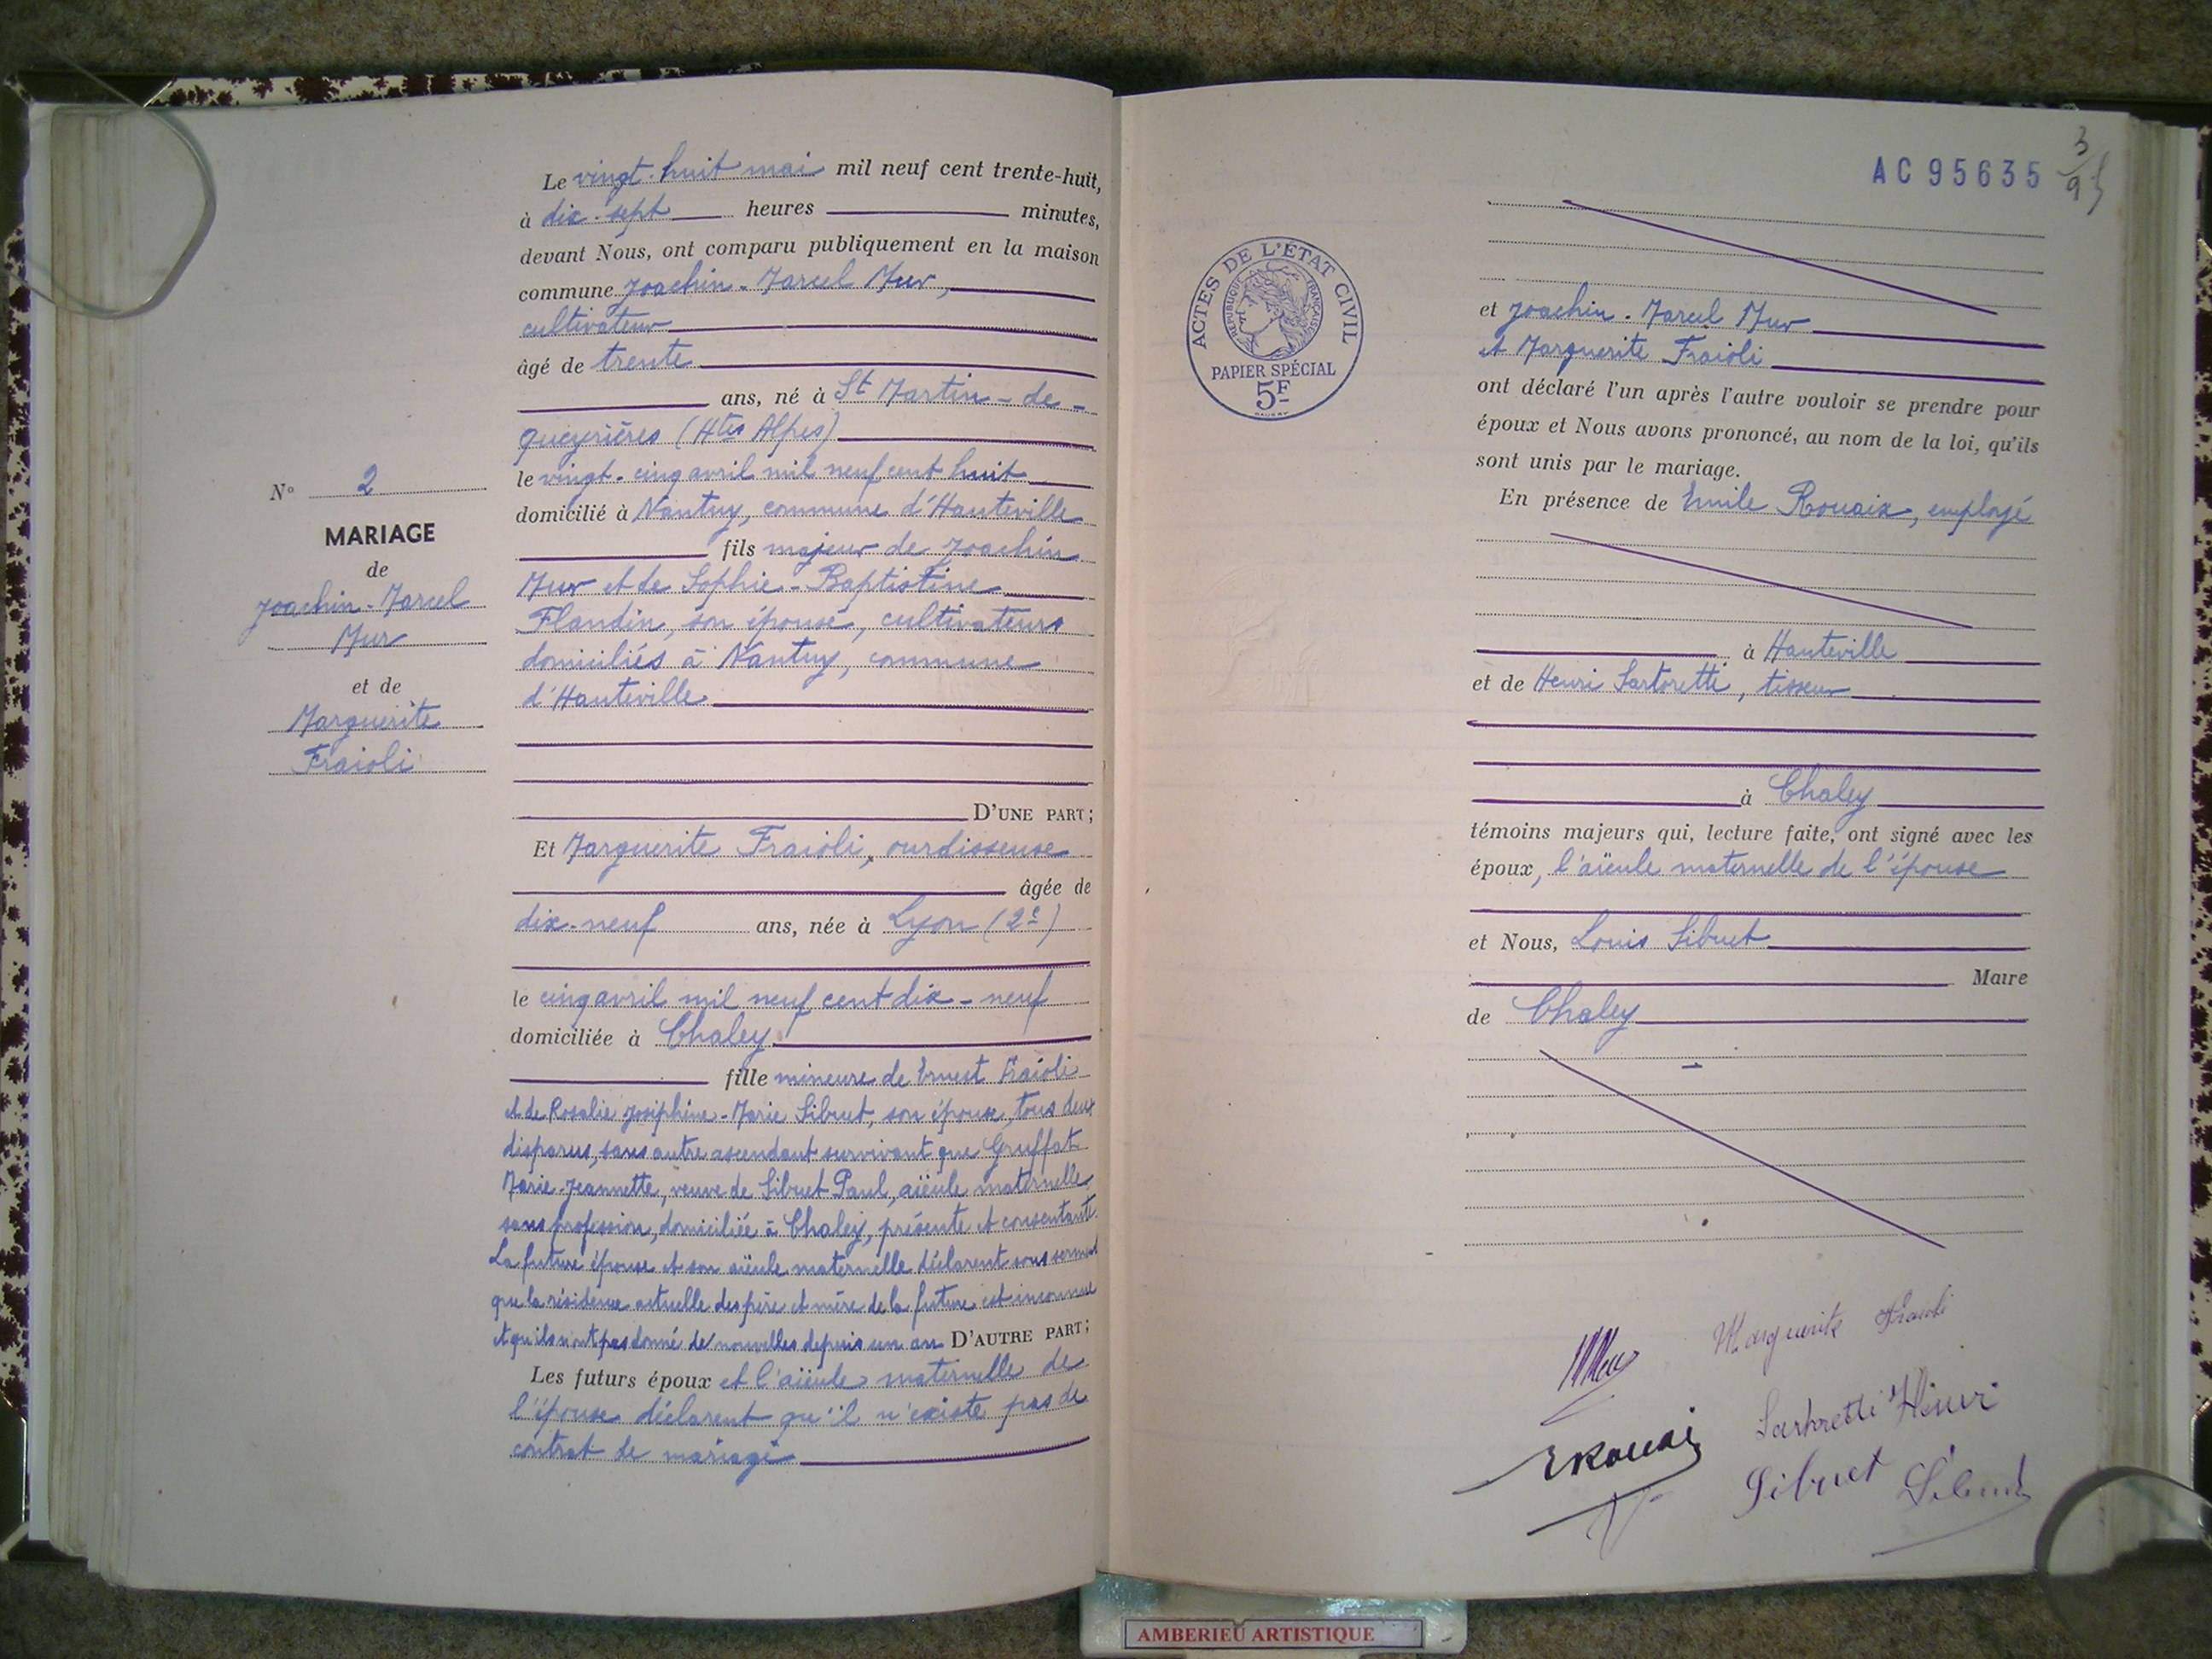 Le vingt-huit mai mil neuf cent trente-huit,
à dix-sept heures minutes,
devant Nous, ont comparu publiquement en la maison
commune Joachin-Marcel Mur,
cultivateur
âgé de trente
ans, né à St Martin-de-
Queyrières (Htes Alpes)
le vingt-cinq avril mil neuf cent huit
domicilié à Nantuy, commune d'Hauteville
fils majeur de Joachin
Mur et de Sophie-Baptistine
Flandin, son épouse, cultivateurs
domiciliés à Nantuy, commune
d'Hauteville
D'UNE PART;
Et Marguerite Fraioli, ourdisseuse
âgée de
dix-neuf ans, née à Lyon (2e)
le cinq avril mil neuf cent dix-neuf
domiciliée à Chaley
fille mineure de Ernest Fraioli
et de Rosalie Joséphine-Marie Sibuet, son épouse, tous deux
disparus, sans autre ascendant survivant que Gruffat
Marie-Jeannette, veuve de Sibuet Paul, aïeule maternelle,
sans profession, domiciliée à Chaley, présente et consentante.
La future épouse et son aïeule maternelle déclarent sous serment
que la résidence actuelle des père et mère de la future est inconnue
et qu'ils n'ont pas donné de nouvelles depuis un an D'AUTRE PART;
Les futurs époux et l'aïeule maternelle de
l'épouse déclarent qu'il n'existe pas de
contrat de mariage
No 2
MARIAGE
de
Joachin-Marcel
Mur
et de
Marguerite
Fraioli
AC 95635
3/95
ACTES DE L'ÉTAT CIVIL
RÉPUBLIQUE FRANÇAISE
PAPIER SPÉCIAL
5F
et Joachin-Marcel Mur
et Marguerite Fraioli
ont déclaré l'un après l'autre vouloir se prendre pour
époux et Nous avons prononcé, au nom de la loi, qu'ils
sont unis par le mariage.
En présence de Emile Rouaix, employé
à Hauteville
et de Henri Sartoretti, tisseur
à Chaley
témoins majeurs qui, lecture faite, ont signé avec les
époux, l'aïeule maternelle de l'épouse
et Nous, Louis Sibuet
Maire
de Chaley
Marguerite Fraioli
Mur
Sartoretti Henri
ERouaix
Sibuet Sibuet
AMBERIEU ARTISTIQUE